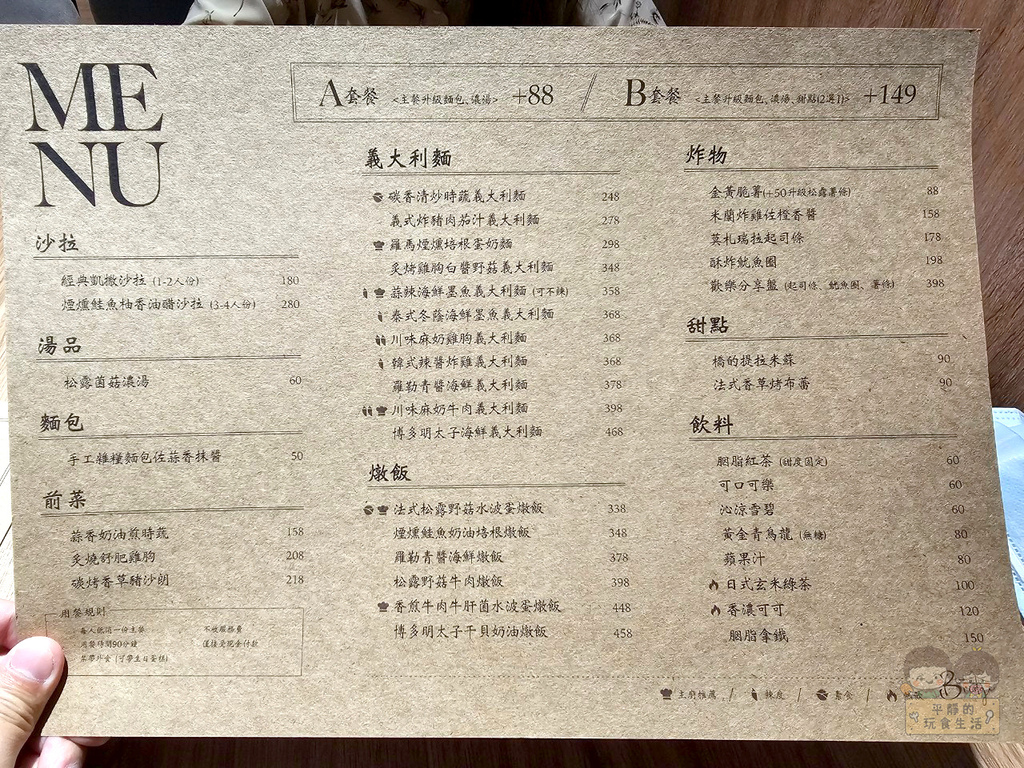 MENU
A套餐 <主餐升級麵包、濃湯> +88 / B套餐 <主餐升級麵包、濃湯、甜點(2選1)> +149
沙拉
經典凱撒沙拉 (1-2人份) 180
煙燻鮭魚柚香油醋沙拉 (3-4人份) 280
湯品
松露菌菇濃湯 60
麵包
手工雜糧麵包佐蒜香抹醬 50
前菜
蒜香奶油煎時蔬 158
炙燒舒肥雞胸 208
碳烤香草豬沙朗 218
用餐規則
每人低消一份主餐
用餐時間90分鐘
禁帶外食 (可帶生日蛋糕)
不收服務費
僅接受現金付款
義大利麵
碳香清炒時蔬義大利麵 248
義式炸豬肉茄汁義大利麵 278
羅馬煙燻培根蛋奶麵 298
炙烤雞胸白醬野菇義大利麵 348
蒜辣海鮮墨魚義大利麵 (可不辣) 358
泰式冬蔭海鮮墨魚義大利麵 368
川味麻奶雞胸義大利麵 368
韓式辣醬炸雞義大利麵 368
羅勒青醬海鮮義大利麵 378
川味麻奶牛肉義大利麵 398
博多明太子海鮮義大利麵 468
燉飯
法式松露野菇水波蛋燉飯 338
煙燻鮭魚奶油培根燉飯 348
羅勒青醬海鮮燉飯 378
松露野菇牛肉燉飯 398
香煎牛肉牛肝菌水波蛋燉飯 448
博多明太子干貝奶油燉飯 458
炸物
金黃脆薯(+50升級松露薯條) 88
米蘭炸雞佐橙香醬 158
莫札瑞拉起司條 178
酥炸魷魚圈 198
歡樂分享盤 (起司條、魷魚圈、薯條) 398
甜點
橋的提拉米蘇 90
法式香草烤布蕾 90
飲料
胭脂紅茶 (甜度固定) 60
可口可樂 60
沁涼雪碧 60
黃金青烏龍 (無糖) 80
蘋果汁 80
日式玄米綠茶 100
香濃可可 120
胭脂拿鐵 150
主廚推薦 / 辣度 / 素食 /
平靜的
玩食生活